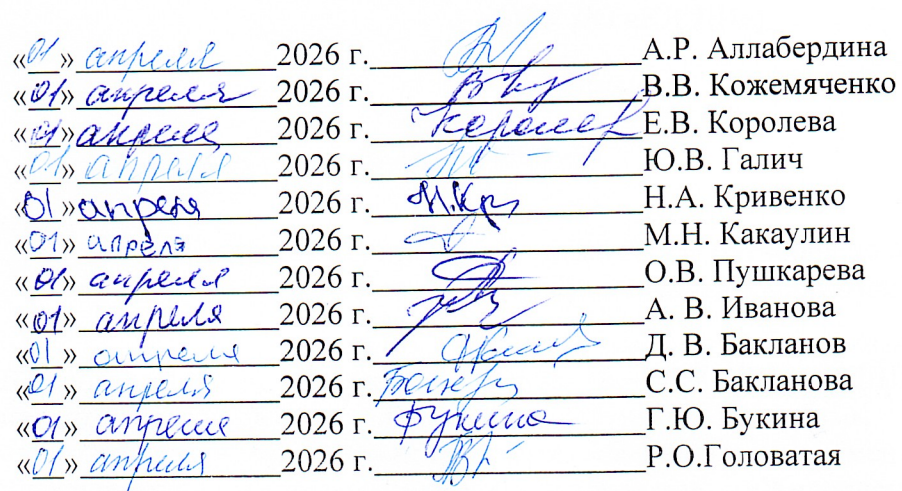 «01» апреля 2026 г. А.Р. Аллабердина
«01» апреля 2026 г. В.В. Кожемяченко
«01» апреля 2026 г. Королев Е.В. Королева
«01» апреля 2026 г. Ю.В. Галич
«01» апреля 2026 г. Н.Кр Н.А. Кривенко
«01» апреля 2026 г. М.Н. Какаулин
«01» апреля 2026 г. О.В. Пушкарева
«01» апреля 2026 г. А. В. Иванова
«01» апреля 2026 г. Д. В. Бакланов
«01» апреля 2026 г. С.С. Бакланова
«01» апреля 2026 г. Букина Г.Ю. Букина
«01» апреля 2026 г. Р.О.Головатая